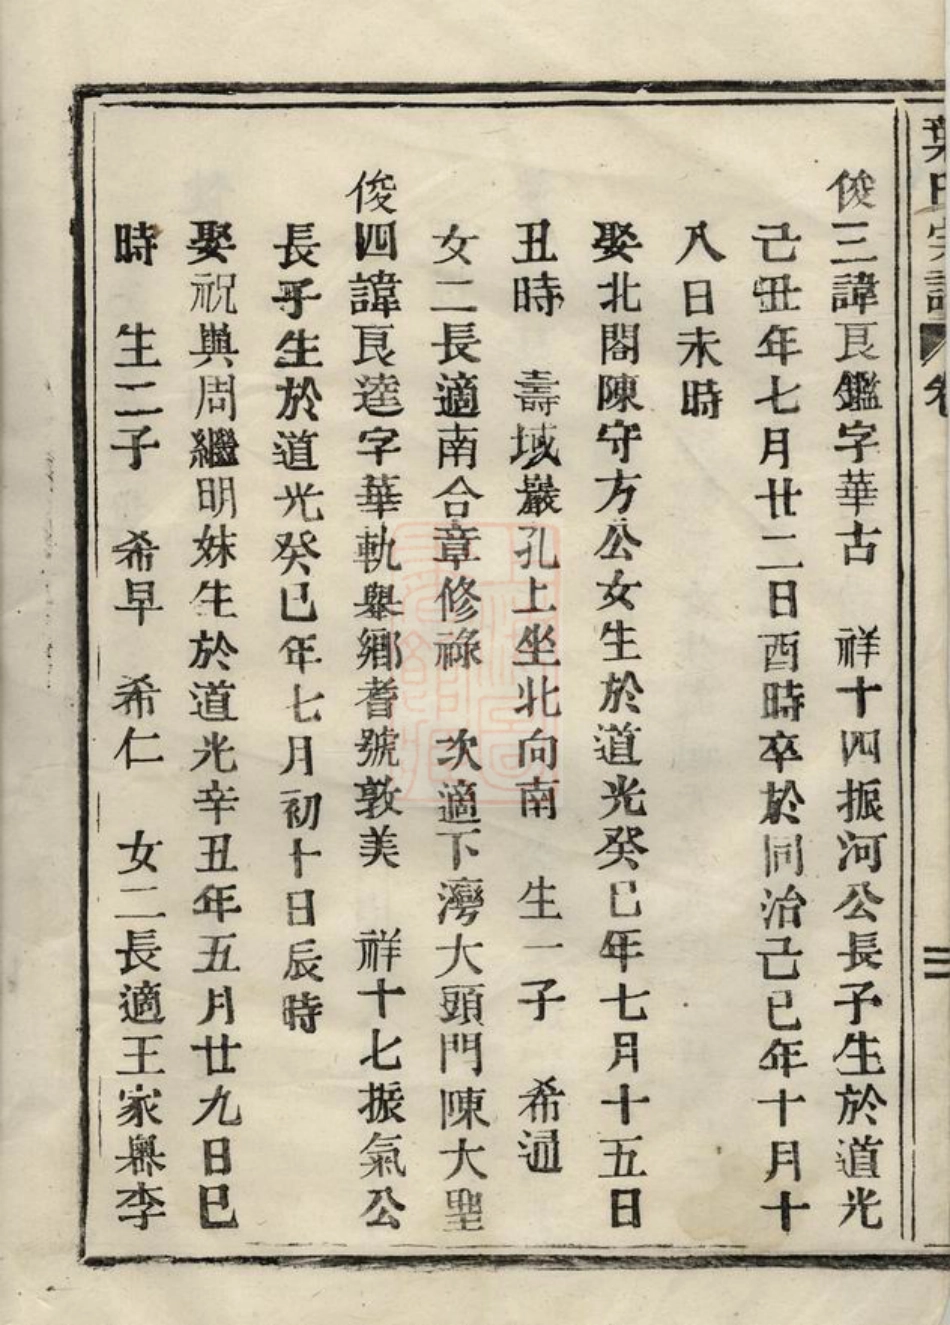 葉氏宗譜 卷 三
俊三諱良鑑字華古 祥十四振河公長子生於道光
己丑年七月廿二日酉時卒於同治己巳年十月十
八日未時
娶北閣陳守方公女生於道光癸巳年七月十五日
丑時 壽域巖孔上坐北向南 生一子 希通
女二長適南合章修祿 次適下灣大頭門陳大聖
俊四諱良達字華軌舉鄉耆號敦美 祥十七振氣公
長子生於道光癸巳年七月初十日辰時
娶祝輿周繼明妹生於道光辛丑年五月廿九日巳
時 生二子 希早 希仁 女二長適王家嶴李